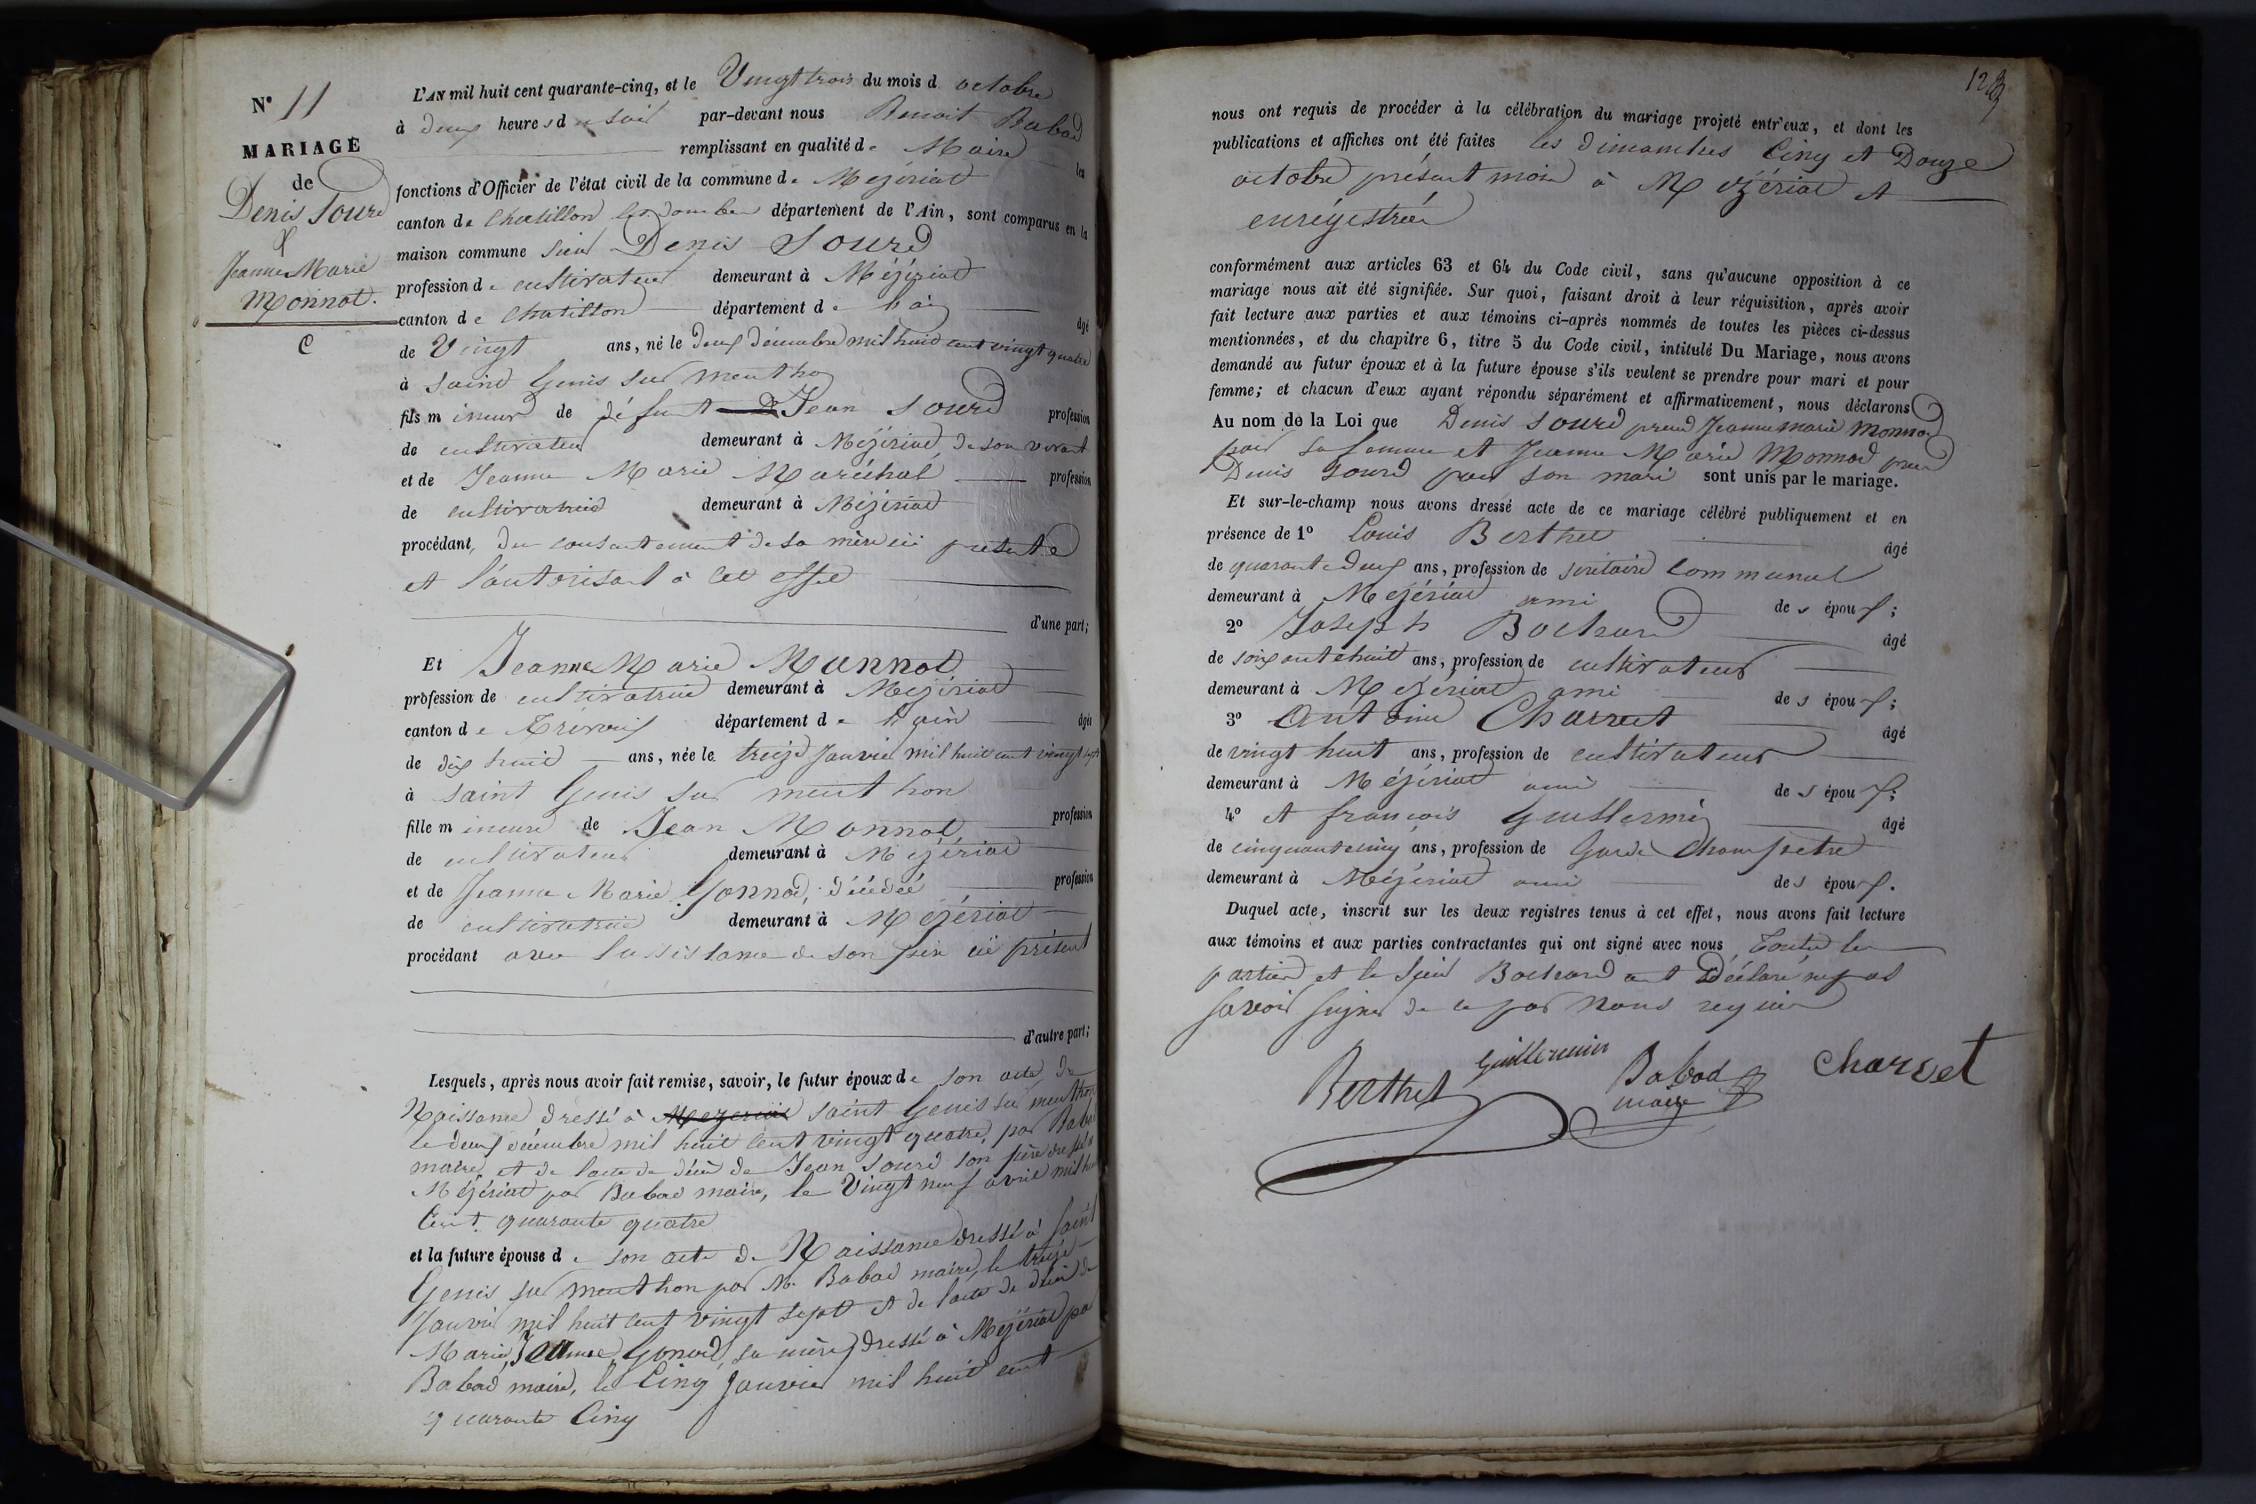 N° 11
MARIAGE
de
Denis Sourd
&
Jeanne Marie
Monnat.
C
L'AN mil huit cent quarante-cinq, et le Vingt trois du mois d octobre
à deux heures du soir par-devant nous Benoit Babad
remplissant en qualité de Maire les
fonctions d'Officier de l'état civil de la commune de Mézériat
canton de Chatillon les dombes département de l'Ain, sont comparus en la
maison commune Sieur Denis Sourd
profession de cultivateur demeurant à Mézériat
canton de Chatillon département de l'ain âgé
de Vingt ans, né le deux décembre mil huit cent vingt quatre
à saint Genis sur menthon
fils mineur de défunt Jean Sourd profession
de cultivateur demeurant à Mézériat, de son vivant
et de Jeanne Marie Maréchal profession
de cultivatrice demeurant à Mézériat
procédant, du consentement de sa mère ici présente
et l'autorisant à cet effet
d'une part;
Et Jeanne Marie Monnat
profession de cultivatrice demeurant à Mézériat
canton de Trévoux département de l'ain âgée
de dix huit ans, née le treize Janvier mil huit cent vingt sept
à saint Genis sur menthon
fille mineure de Jean Monnat profession
de cultivateur demeurant à Mézériat
et de Jeanne Marie Gonnod, décédée profession
de cultivatrice demeurant à Mézériat
procédant avec l'assistance de son père ici présent
d'autre part;
Lesquels, après nous avoir fait remise, savoir, le futur époux de son acte de
Naissance dressé à Mezeriat saint Genis sur menthon
le deux décembre mil huit cent vingt quatre, par Babad
maire, et de l'acte de décès de Jean Sourd son père dressé à
Mézériat par Babad maire, le Vingt neuf avril mil huit
Cent quarante quatre
et la future épouse de son acte de Naissance dressé à Saint
Genis sur menthon par M. Babad maire, le treize
Janvier mil huit cent vingt sept et de l'acte de décès de
Marie Jeanne Gonod, sa mère, dressé à Mézériat par
Babad maire, le Cinq Janvier mil huit cent
quarante Cinq
nous ont requis de procéder à la célébration du mariage projeté entr'eux, et dont les
publications et affiches ont été faites les dimanches Cinq et Douze
octobre présent mois à Mézériat et
enrégistrées
conformément aux articles 63 et 64 du Code civil, sans qu'aucune opposition à ce
mariage nous ait été signifiée. Sur quoi, faisant droit à leur réquisition, après avoir
fait lecture aux parties et aux témoins ci-après nommés de toutes les pièces ci-dessus
mentionnées, et du chapitre 6, titre 5 du Code civil, intitulé Du Mariage, nous avons
demandé au futur époux et à la future épouse s'ils veulent se prendre pour mari et pour
femme; et chacun d'eux ayant répondu séparément et affirmativement, nous déclarons
Au nom de la Loi que Denis Sourd prend Jeanne marie Monnod
pour sa femme et Jeanne Marie Monnod prend
Denis Sourd pour son mari sont unis par le mariage.
Et sur-le-champ nous avons dressé acte de ce mariage célébré publiquement et en
présence de 1° Louis Berthet âgé
de quarante deux ans, profession de secrétaire Communal
demeurant à Mézériat ami des époux;
2° Joseph Bochard âgé
de soixante huit ans, profession de cultivateur
demeurant à Mézériat ami des époux;
3° Antoine Charvet âgé
de vingt huit ans, profession de cultivateur
demeurant à Mézériat ami des époux;
4° et françois Guillermin âgé
de cinquante cinq ans, profession de Garde Champêtre
demeurant à Mézériat ami des époux.
Duquel acte, inscrit sur les deux registres tenus à cet effet, nous avons fait lecture
aux témoins et aux parties contractantes qui ont signé avec nous Toutes les
parties et le sieur Bochard ont Déclaré ne pas
savoir signer de ce par Nous requis
Berthet Guillermin Babad Charvet
maire